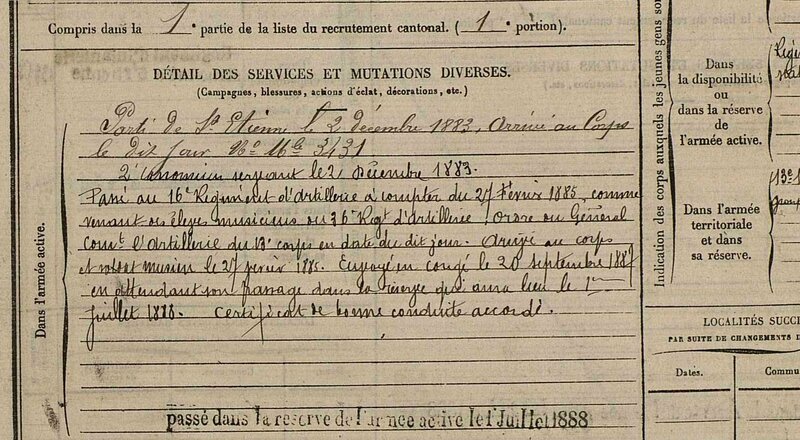 Compris dans la 1e partie de la liste du recrutement cantonal. (1e portion).
DÉTAIL DES SERVICES ET MUTATIONS DIVERSES.
(Campagnes, blessures, actions d'éclat, décorations, etc.)
Parti de St Etienne le 2 décembre 1883, Arrivé au Corps
le dit jour No Mle 3431
2e Canonnier servant le 2 Décembre 1883.
Passé au 16e Régiment d'Artillerie à compter du 27 Février 1885 comme
venant des élèves musiciens du 36e Régt d'Artillerie, Ordre du Général
Comt l'Artillerie du 13e corps en date du dit jour. Arrivé au corps
et soldat musicien le 27 février 1885. Envoyé en congé le 20 septembre 1887
en attendant son passage dans la réserve qui aura lieu le 1er
juillet 1888. Certificat de bonne conduite accordé.
passé dans la réserve de l'armée active le 1 Juillet 1888
Dans l'armée active.
Indication des corps auxquels les jeunes gens son
Dans
la disponibilité
ou
dans la réserve
de
l'armée active.
Dans l'armée
territoriale
et dans
sa réserve.
13e
LOCALITÉS SUCC
PAR SUITE DE CHANGEMENTS D
Dates.
Commu